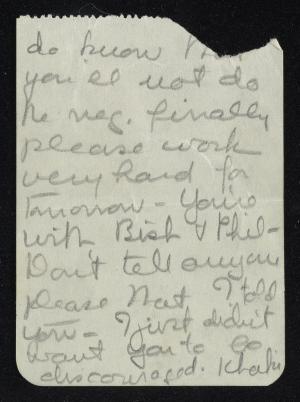 do know that
you'll not do
he neg. finally
please work
very hard for
Tomorrow - You're
with Bish & Phil -
Don't tell anyone
please that I told
you - I just didn't
want you to be
discouraged.